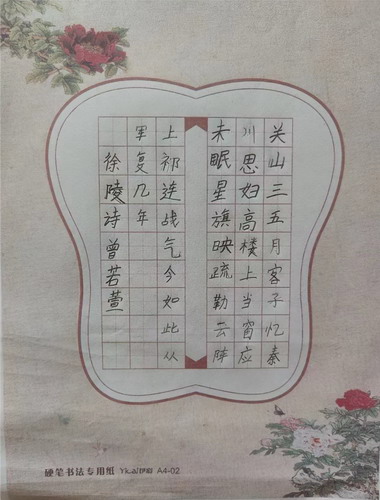 关山三五月客子忆秦
川思妇高楼上当窗应
未眠星旗映疏勒云阵
上祁连战气今如此从
军复几年
徐陵诗曾若萱
硬笔书法专用纸 A4-02